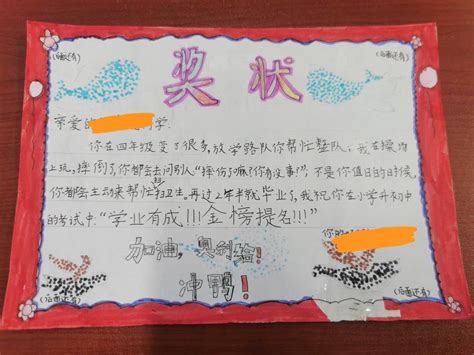 (后面还有)
奖状
(后面还有)
亲爱的 同学:
你在四年级变了很多,放学路队你帮忙整队,我在操场
上玩,摔倒了,你都会去问别人"摔伤了嘛?你有没事?",不是你值日的时候,
你都会主动来帮忙扫卫生。再过2年半就毕业了,我祝你在小学升初中
的考试中:"学业有成!!!金榜提名!!!"
你的
加油,奥利给!
冲鸭!
(后面还有)
(后面还有)